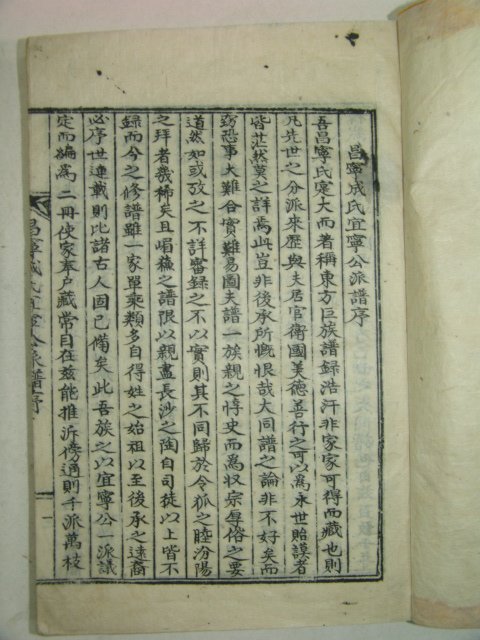 昌寧成氏宜寧公派譜序
吾昌寧氏寔大而著稱東方巨族譜錄浩汗非家家可得而藏也則
凡先世之分派來歷與夫居官衛國美德善行之可以爲永世貽謨者
皆茫然莫之詳焉此豈非後承所慨恨哉大同譜之論非不好矣而
竊恐事大難合實難易圖夫譜一族親之恃史而爲収宗厚俗之要
道然知或攷之不詳審錄之不以實則其不同歸於令狐之睦汾陽
之拜者幾稀矣且嵋蘓之譜限以親盡長沙之陶自司徒以上皆不
錄而今之修譜雖一家單乘類多自得姓之始祖以至後承之遠裔
必序世連載則比諸古人固已備矣此吾族之以宜寧公一派議
定而編爲二冊使家奉戶藏常目在玆能推泝傍通則千派萬枝
昌寧成氏宜寧公派譜序
一